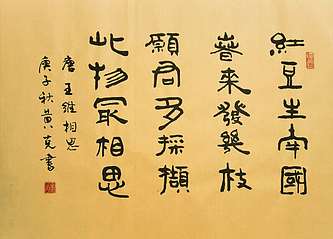 紅豆生南國
春來發幾枝
願君多採擷
此物最相思
唐王維相思
庚子秋黃克書